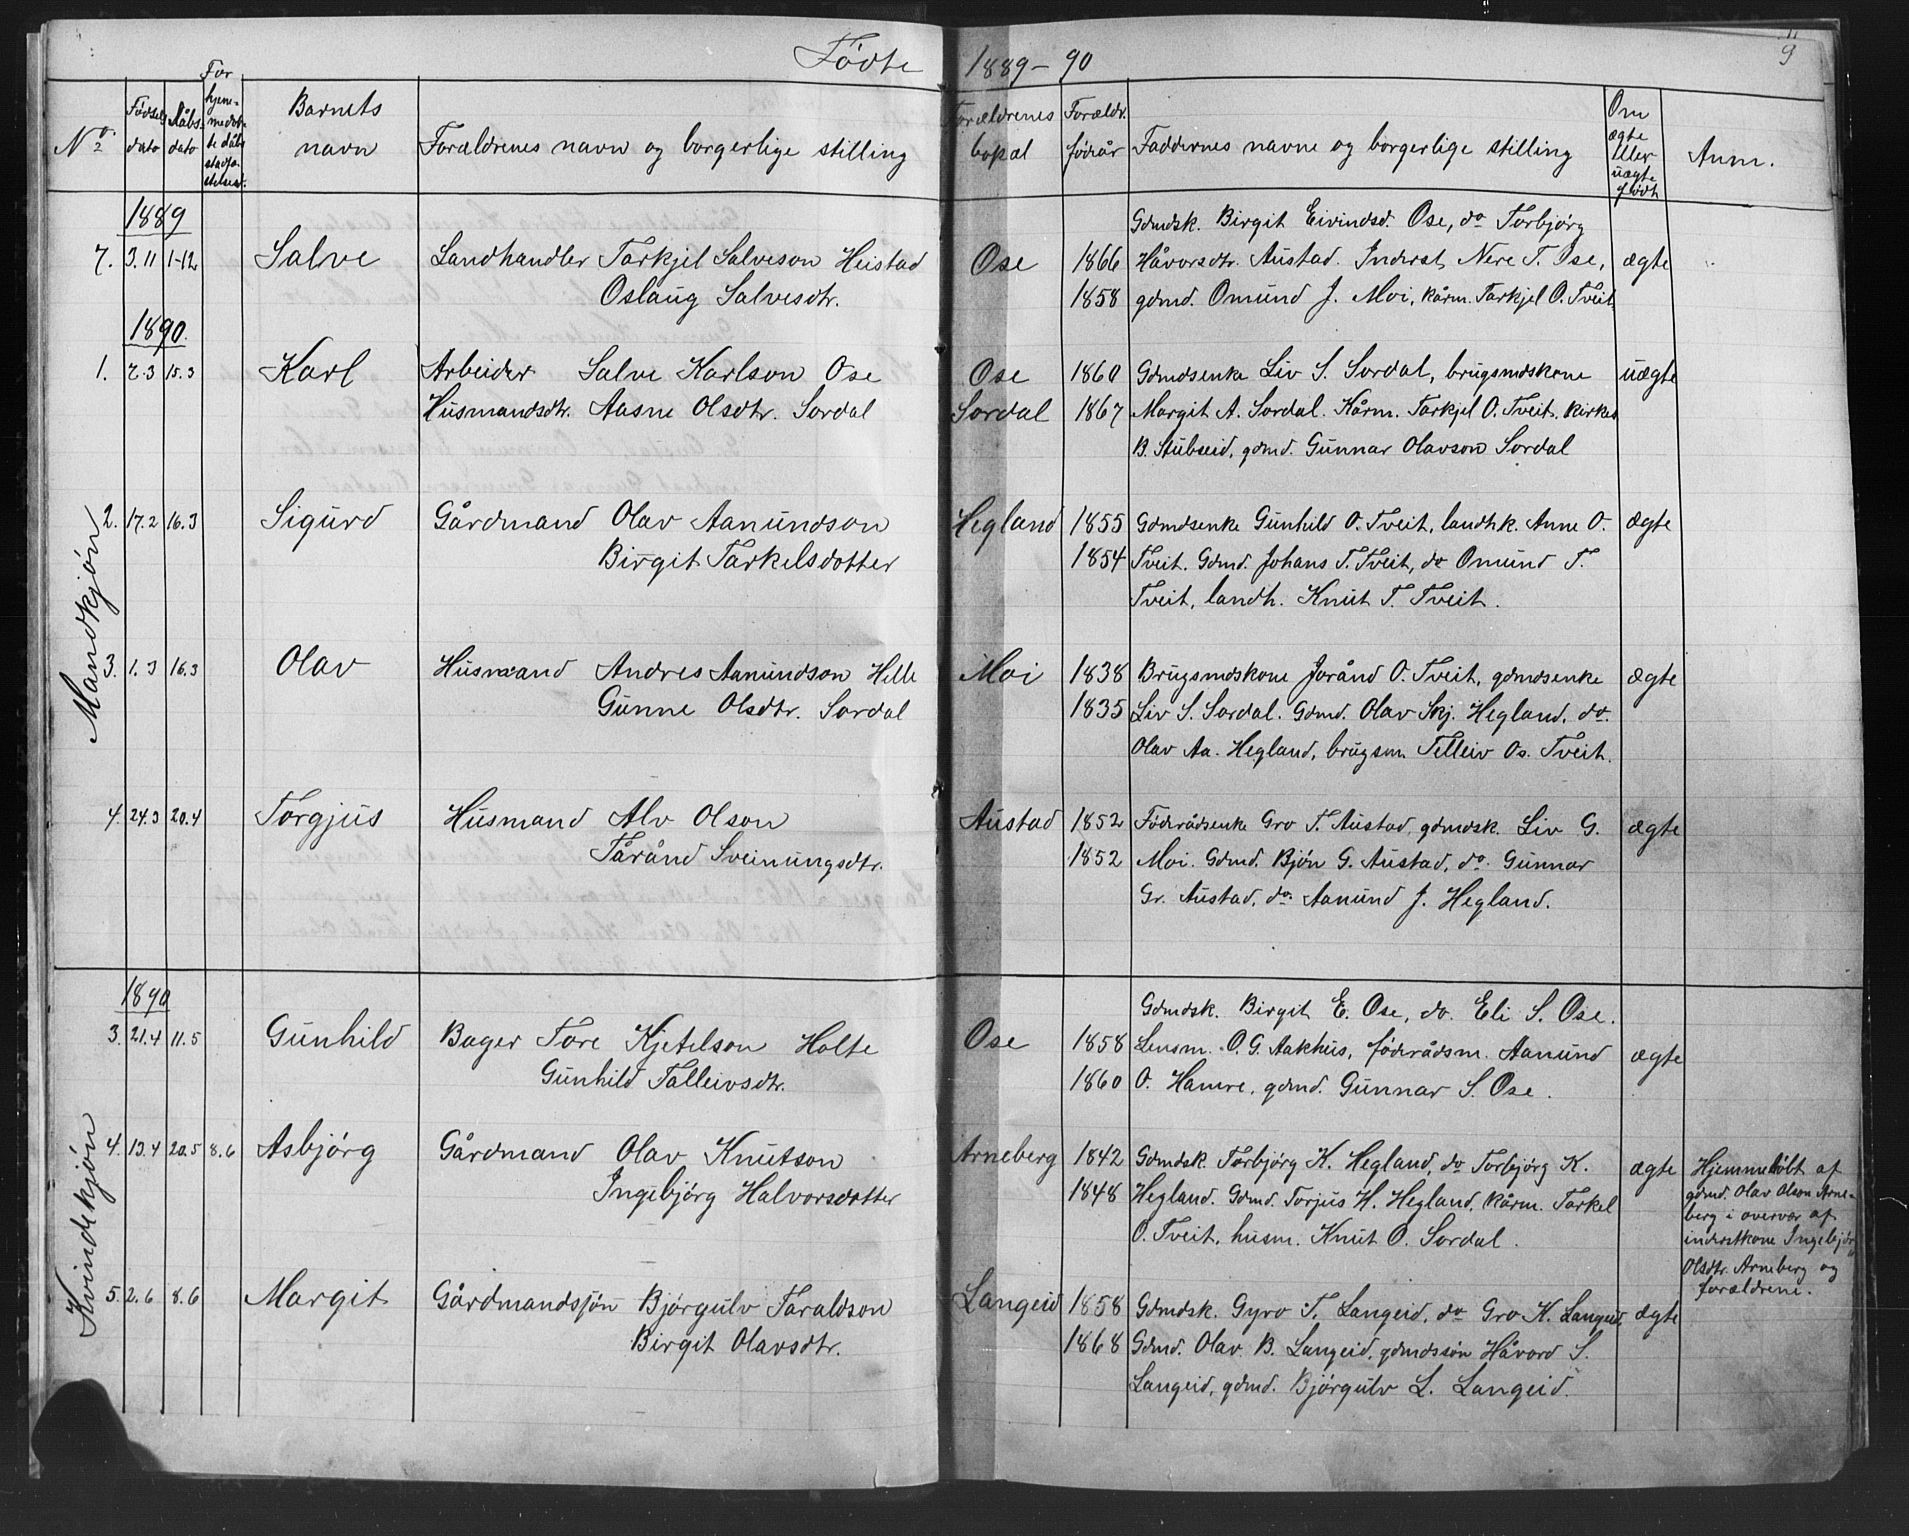 Fødte 1889-90
9
No
Fødsels dato
Dåbs dato
For hjemmedøbte dåbs stadfæstelse.
Barnets navn
Forældrenes navn og borgerlige stilling
Forældrenes bopæl
Foræld. fødeår
Faddernes navne og borgerlige stilling
Om ægte eller uægte født
Anm.
Mandkjøn
1889
Gdmdsk. Birgit Eivindsd. Ose, do Torbjørg
7. 3.11 1-12 Salve Landhandler Tarkjel Salveson Heistad Ose 1866 Håvorsdtr. Austad. Inderst Nere T. Ose, ægte
Oslaug Salvesdtr. 1858 gdmd. Omund J. Moi, kårm. Tarkjel O. Tveit
1890.
1. 2.3 15.3 Karl Arbeider Salve Karlson Ose Ose 1860 Gdmdsenke Liv S. Sordal, brugsmdskone uægte
Husmandsdtr. Aasne Olsdtr. Sordal Sordal 1867 Margit A. Sordal. Kårm. Tarkjel O. Tveit, kirkes.
B. Stubseid, gdmd. Gunnar Olavson Sordal
2. 17.2 16.3 Sigurd Gårdmand Olav Aanundson Hegland 1855 Gdmdsenke Gunhild O. Tveit, landhk. Anne O. ægte
Birgit Tarkelsdotter 1854 Tveit. Gdmd. Johans T. Tveit, do Omund T.
Tveit, landh. Knut T. Tveit.
3. 1.3 16.3 Olav Husmand Andres Aanundson Helle Moi 1838 Brugsmdskone Jorånd O. Tveit, gdmdsenke ægte
Gunne Olsdtr. Sordal 1835 Liv S. Sordal. Gdmd. Olav Skj. Hegland, do.
Olav Aa. Hegland, brugsm. Telleiv Os. Tveit.
4. 24.3 20.4 Torgjus Husmand Alv Olson Austad 1852 Føderådsenke Gro T. Austad, gdmdsk. Liv G. ægte
Tårånd Sveinungsdtr. 1852 Moi. Gdmd. Bjøn G. Austad, do. Gunnar
Gr. Austad, do. Aanund J. Hegland.
Kvindekjøn
1890
Gdmdsk. Birgit E. Ose, do. Eli S. Ose.
3. 21.4 11.5 Gunhild Bager Tore Kjetelson Holte Ose 1858 Lensm. O. G. Aakhus, føderådsm. Aanund ægte
Gunhild Talleivsdtr. 1860 O. Hamre, gdmd. Gunnar S. Ose.
4. 13.4 20.5 8.6 Asbjørg Gårdmand Olav Knutson Arneberg 1842 Gdmdsk. Torbjørg K. Hegland, do Torbjørg K. ægte
Ingebjørg Halvorsdotter 1848 Hegland. Gdmd. Torjus H. Hegland, kårm. Tarkel
O. Tveit, husm. Knut O. Sordal.
Hjemmedøbt af
gdmd. Olav Olson Arne-
berg i overvær af
inderstkone Ingebjør
Olsdtr. Arneberg og
forældrene.
5. 2.6 8.6 Margit Gårdmandssøn Bjørgulv Taraldson Langeid 1858 Gdmdsk. Gyro T. Langeid, do Gro K. Langeid, ægte
Birgit Olavsdtr. 1868 Gdmd. Olav B. Langeid, gdmdssøn Håvard S.
Langeid, gdmd. Bjørgulv L. Langeid.